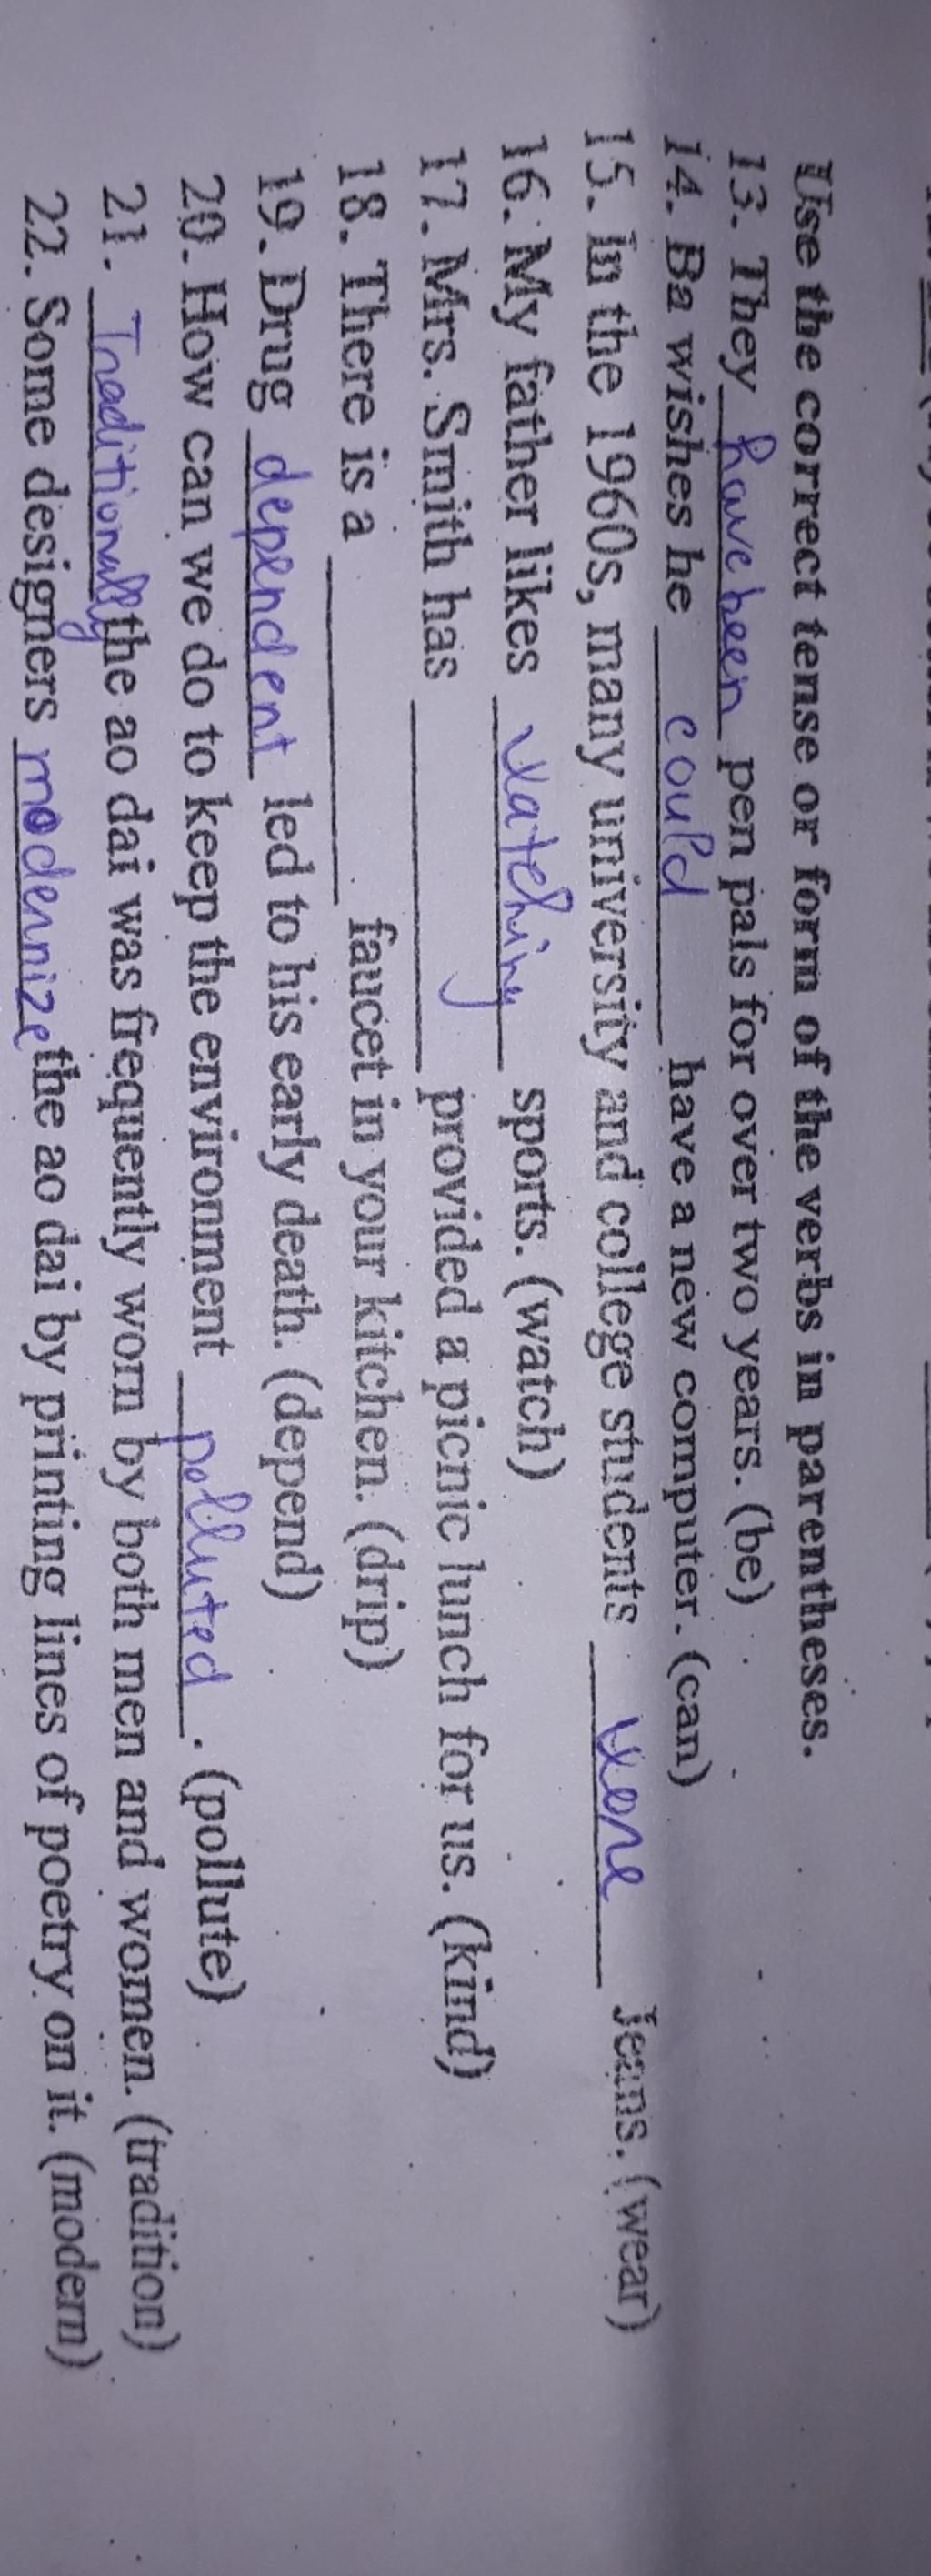 Use the correct tense or form of the verbs in parentheses.
13. They have been pen pals for over two years. (be)
14. Ba wishes he could have a new computer. (can)
15. In the 1960s, many university and college students wore Jeans. (wear)
16. My father likes watching sports. (watch)
17. Mrs. Smith has ______ provided a picnic lunch for us. (kind)
18. There is a ______ faucet in your kitchen. (drip)
19. Drug dependent led to his early death. (depend)
20. How can we do to keep the environment polluted. (pollute)
21. Traditionally the ao dai was frequently worn by both men and women. (tradition)
22. Some designers modernize the ao dai by printing lines of poetry on it. (modern)